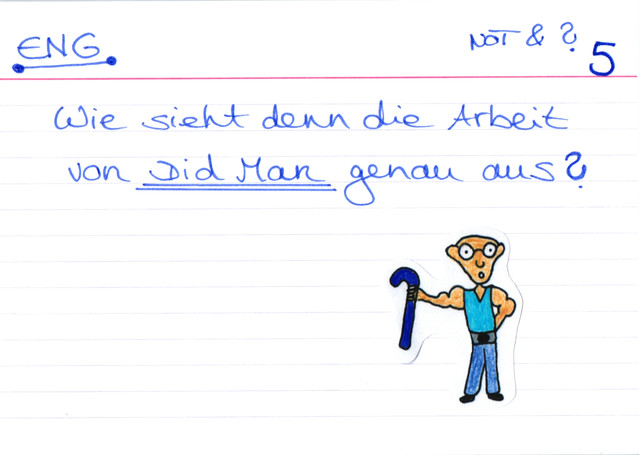 ENG
NOT & ?
5
Wie sieht denn die Arbeit
von Did Man genau aus?